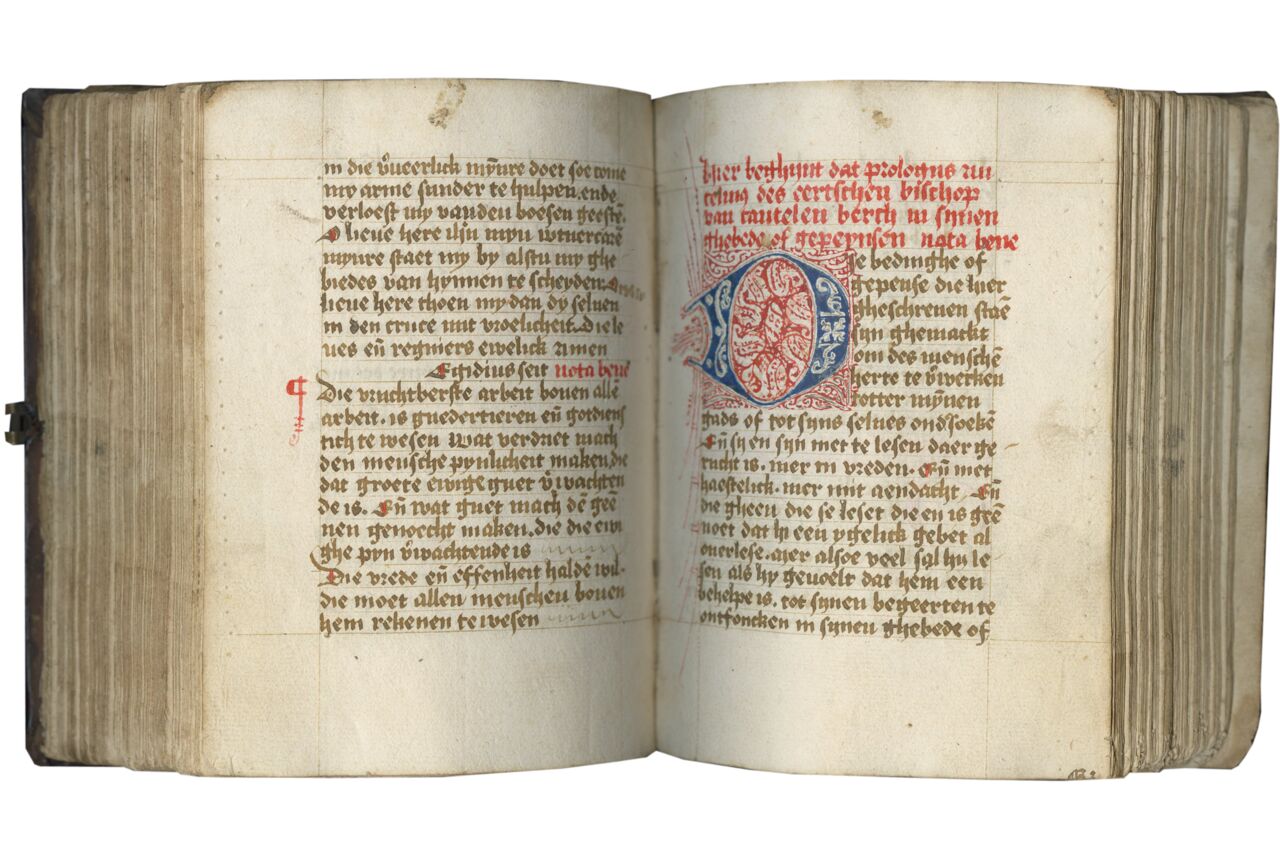 in die vueerlick mynre doet soe come
my arme sunder te hulpen. ende
verloest my vanden boesen geeste.
O lieue here ihu myn wtuercarē
mynre staet my by alstu my ghe
biedes van hynnen te scheyden.
lieue here thoen my dan dy seluen
in den cruce mit vroelicheit. Die le
ues eñ regniers ewelick Amen
Egidius seit nota bene
¶ Die vruchtberste arbeit bouen allē
arbeit. is guedertieren eñ gotdiens
tich te wesen Wat verdriet mach
den mensche pynlicheit maken. die
dat groete ewige guet v̄wachten
de is. Eñ wat guet mach dē geē
nen genoecht maken. die die ewi
ghe pyn v̄wachtende is
Die vrede eñ effenheit haldē wil.
die moet allen menschen bouen
hem rekenen te wesen
Hier beghynt dat prologus An
celmus des eertschen bischop
van cantelen berch in synen
ghebede of gepeynsen nota bene
Dse bedinghe of
gepense die hier
gheschreuen staē
syn ghemackt
om des menschē
herte te v̄werken
totter mynnen
gads of tot syns selues ondsoekē
Eñ sy en syn met te lesen daer ge
rucht is. mer in vreden. Eñ met
haestelick. mer mit aendacht. Eñ
die gheen die se leset die en is geē
noet dat hi een ygelick gebet al
ouerlese. Mer alsoe veel sal hy le
sen als hy geuoelt dat hem een
behelpe is. tot synen begeerten te
ontfoncken in synen ghebede of